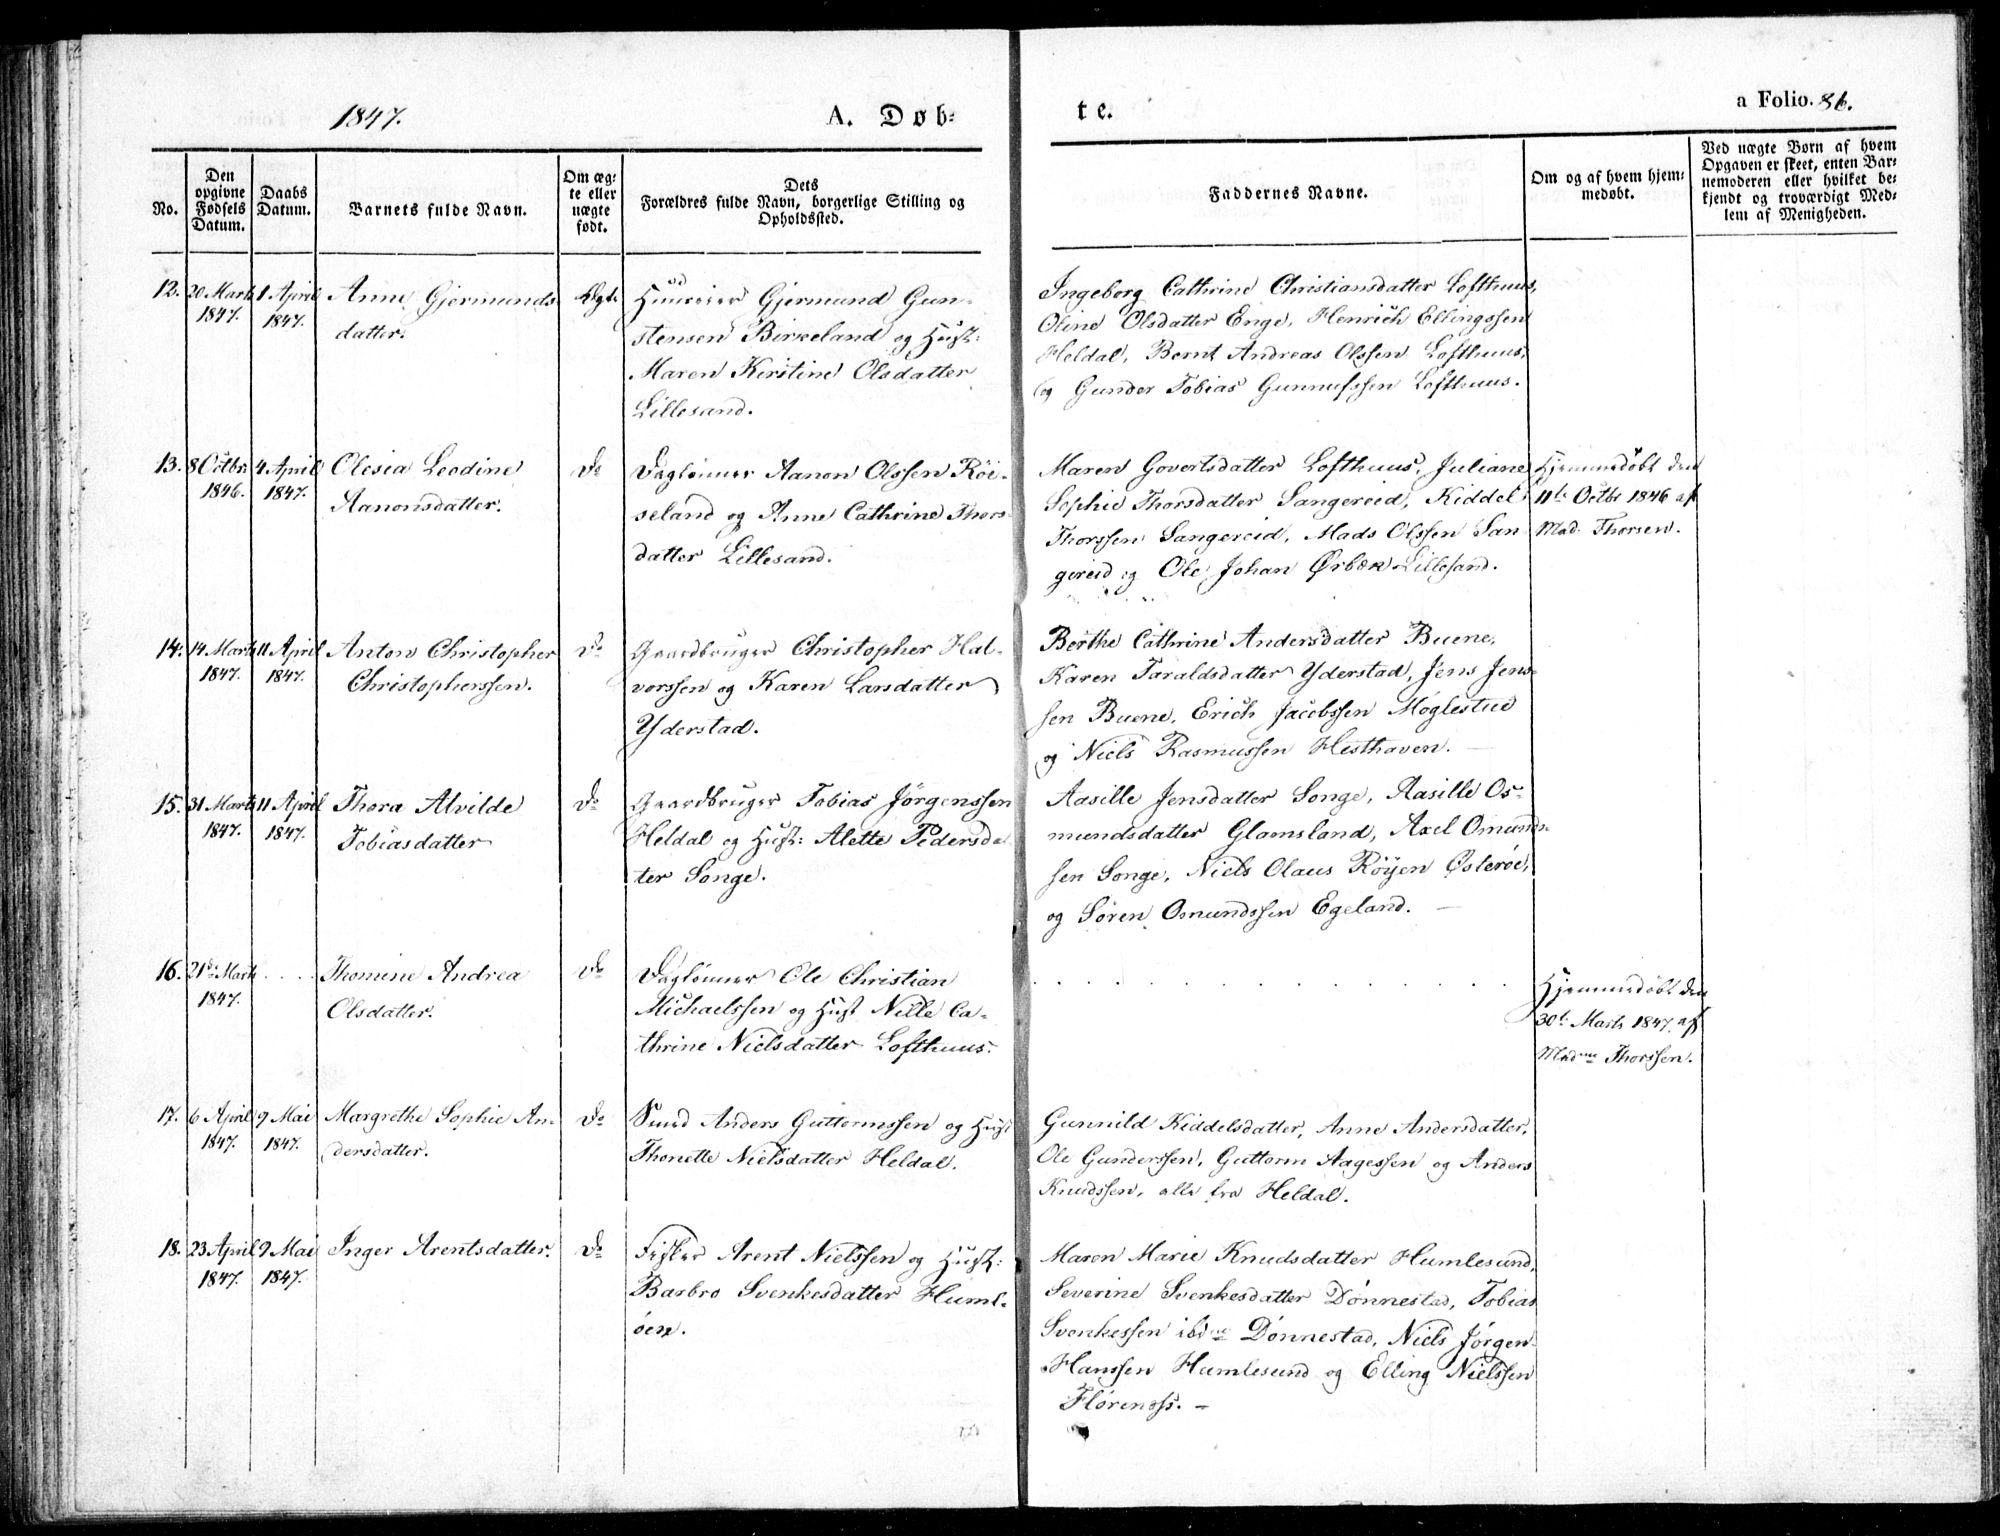 1847.
A. Døb=
te.
a Folio. 86.
No.
Den
opgivne
Fødsels
Datum.
Daabs
Datum.
Barnets fulde Navn.
Om æg-
te eller
uægte
født.
Dets
Forældres fulde Navn, borgerlige Stilling og
Opholdssted.
Faddernes Navne.
Om og af hvem hjem-
medøbt.
Ved uægte Børn af hvem
Opgaven er skeet, enten Bar-
nemoderen eller hvilket be-
kjendt og troværdigt Med-
lem af Menigheden.
12. 20 Marts 1847. 1 April 1847.
Anne Gjermunds-
datter.
Ægt.
Huuseier Gjermund Gun-
stensen Birkeland og Hust:
Maren Kirstine Olsdatter
Lillesand.
Ingeborg Cathrine Christiansdatter Lofthuus,
Oline Olsdatter Enge, Henrich Ellingssen
Heldal, Bernt Andreas Olssen Lofthuus,
og Gunder Tobias Gunnufssen Lofthuus.
13. 8 Octbr 1846. 4 April 1847.
Olesia Leodine
Aanonsdatter.
Do
Daglønner Aanon Olssen Röi-
seland og Anne Cathrine Thors-
datter Lillesand.
Maren Govertsdatter Lofthuus, Juliane
Sophie Thorsdatter Sangereid, Kiddel
Thorssen Sangereid, Mads Olssen San
gereid og Ole Johan Ørbæk Lillesand.
Hjemmedøbt den
11te Octbr 1846 af
Mad. Thorsen.
14. 14 Marts 1847. 11 April 1847.
Anton Christopher
Christopherssen.
Do
Gaardbruger Christopher Hal-
vorssen og Karen Larsdatter
Yderstad.
Berthe Cathrine Andersdatter Buene,
Karen Taraldsdatter Yderstad, Jens Jens-
sen Buene, Erich Jacobssen Møglestue
og Niels Rasmussen Hesthaven. —
15. 31 Marts 1847. 11 April 1847.
Thora Alvilde
Tobiasdatter
Do
Gaardbruger Tobias Jørgenssen
Heldal og Hust: Alette Pedersdat-
ter Songe.
Aasille Jensdatter Songe, Aasille Os-
mundsdatter Glamsland, Axel Omunds-
sen Songe, Niels Olaus Röijen Østeröe,
og Søren Osmundssen Egeland. —
16. 21de Marts 1847. . . . .
Thomine Andrea
Olsdatter.
Do
Daglønner Ole Christian
Michaelssen og Hust Nille Ca-
thrine Nielsdatter Lofthuus.
. . . . . . . . . . . . . . . .
Hjemmedøbt den
30te Marts 1847. af
Madme Thorssen.
17. 6 April 1847. 9 Mai 1847.
Margrethe Sophie An-
dersdatter.
Do
Smed Anders Guttormssen og Hust
Thonette Nielsdatter Heldal.
Gunnild Kiddelsdatter, Anne Andersdatter,
Ole Gunderssen, Guttorm Aagessen og Anders
Knudssen, alle fra Heldal.
18. 23 April 1847. 9 Mai 1847.
Inger Arentsdatter.
Do
Fisker Arent Nielssen og Hust:
Barbro Svenkesdatter Huml-
öen.
Maren Marie Knudsdatter Humlesund,
Severine Svenkesdatter Dønnestad, Tobias
Svenkessen Dønnestad, Niels Jørgen
Hanssen Humlesund og Elling Nielssen